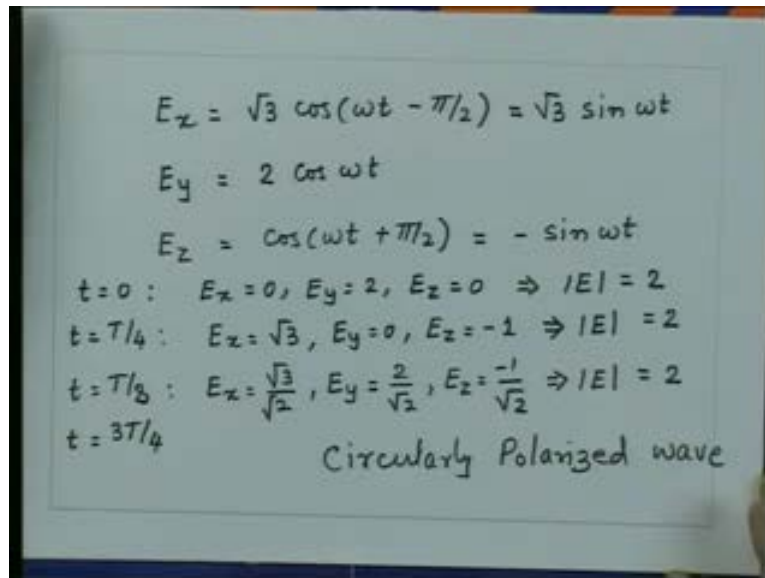 Ex = √3 cos(ωt - π/2) = √3 sin ωt
Ey = 2 cos ωt
Ez = cos(ωt + π/2) = - sin ωt
t=0 : Ex=0, Ey=2, Ez=0 ⇒ |E| = 2
t=T/4 : Ex=√3, Ey=0, Ez=-1 ⇒ |E| = 2
t=T/8 : Ex=√3/√2, Ey=2/√2, Ez=-1/√2 ⇒ |E| = 2
t=3T/4
Circularly Polarized wave